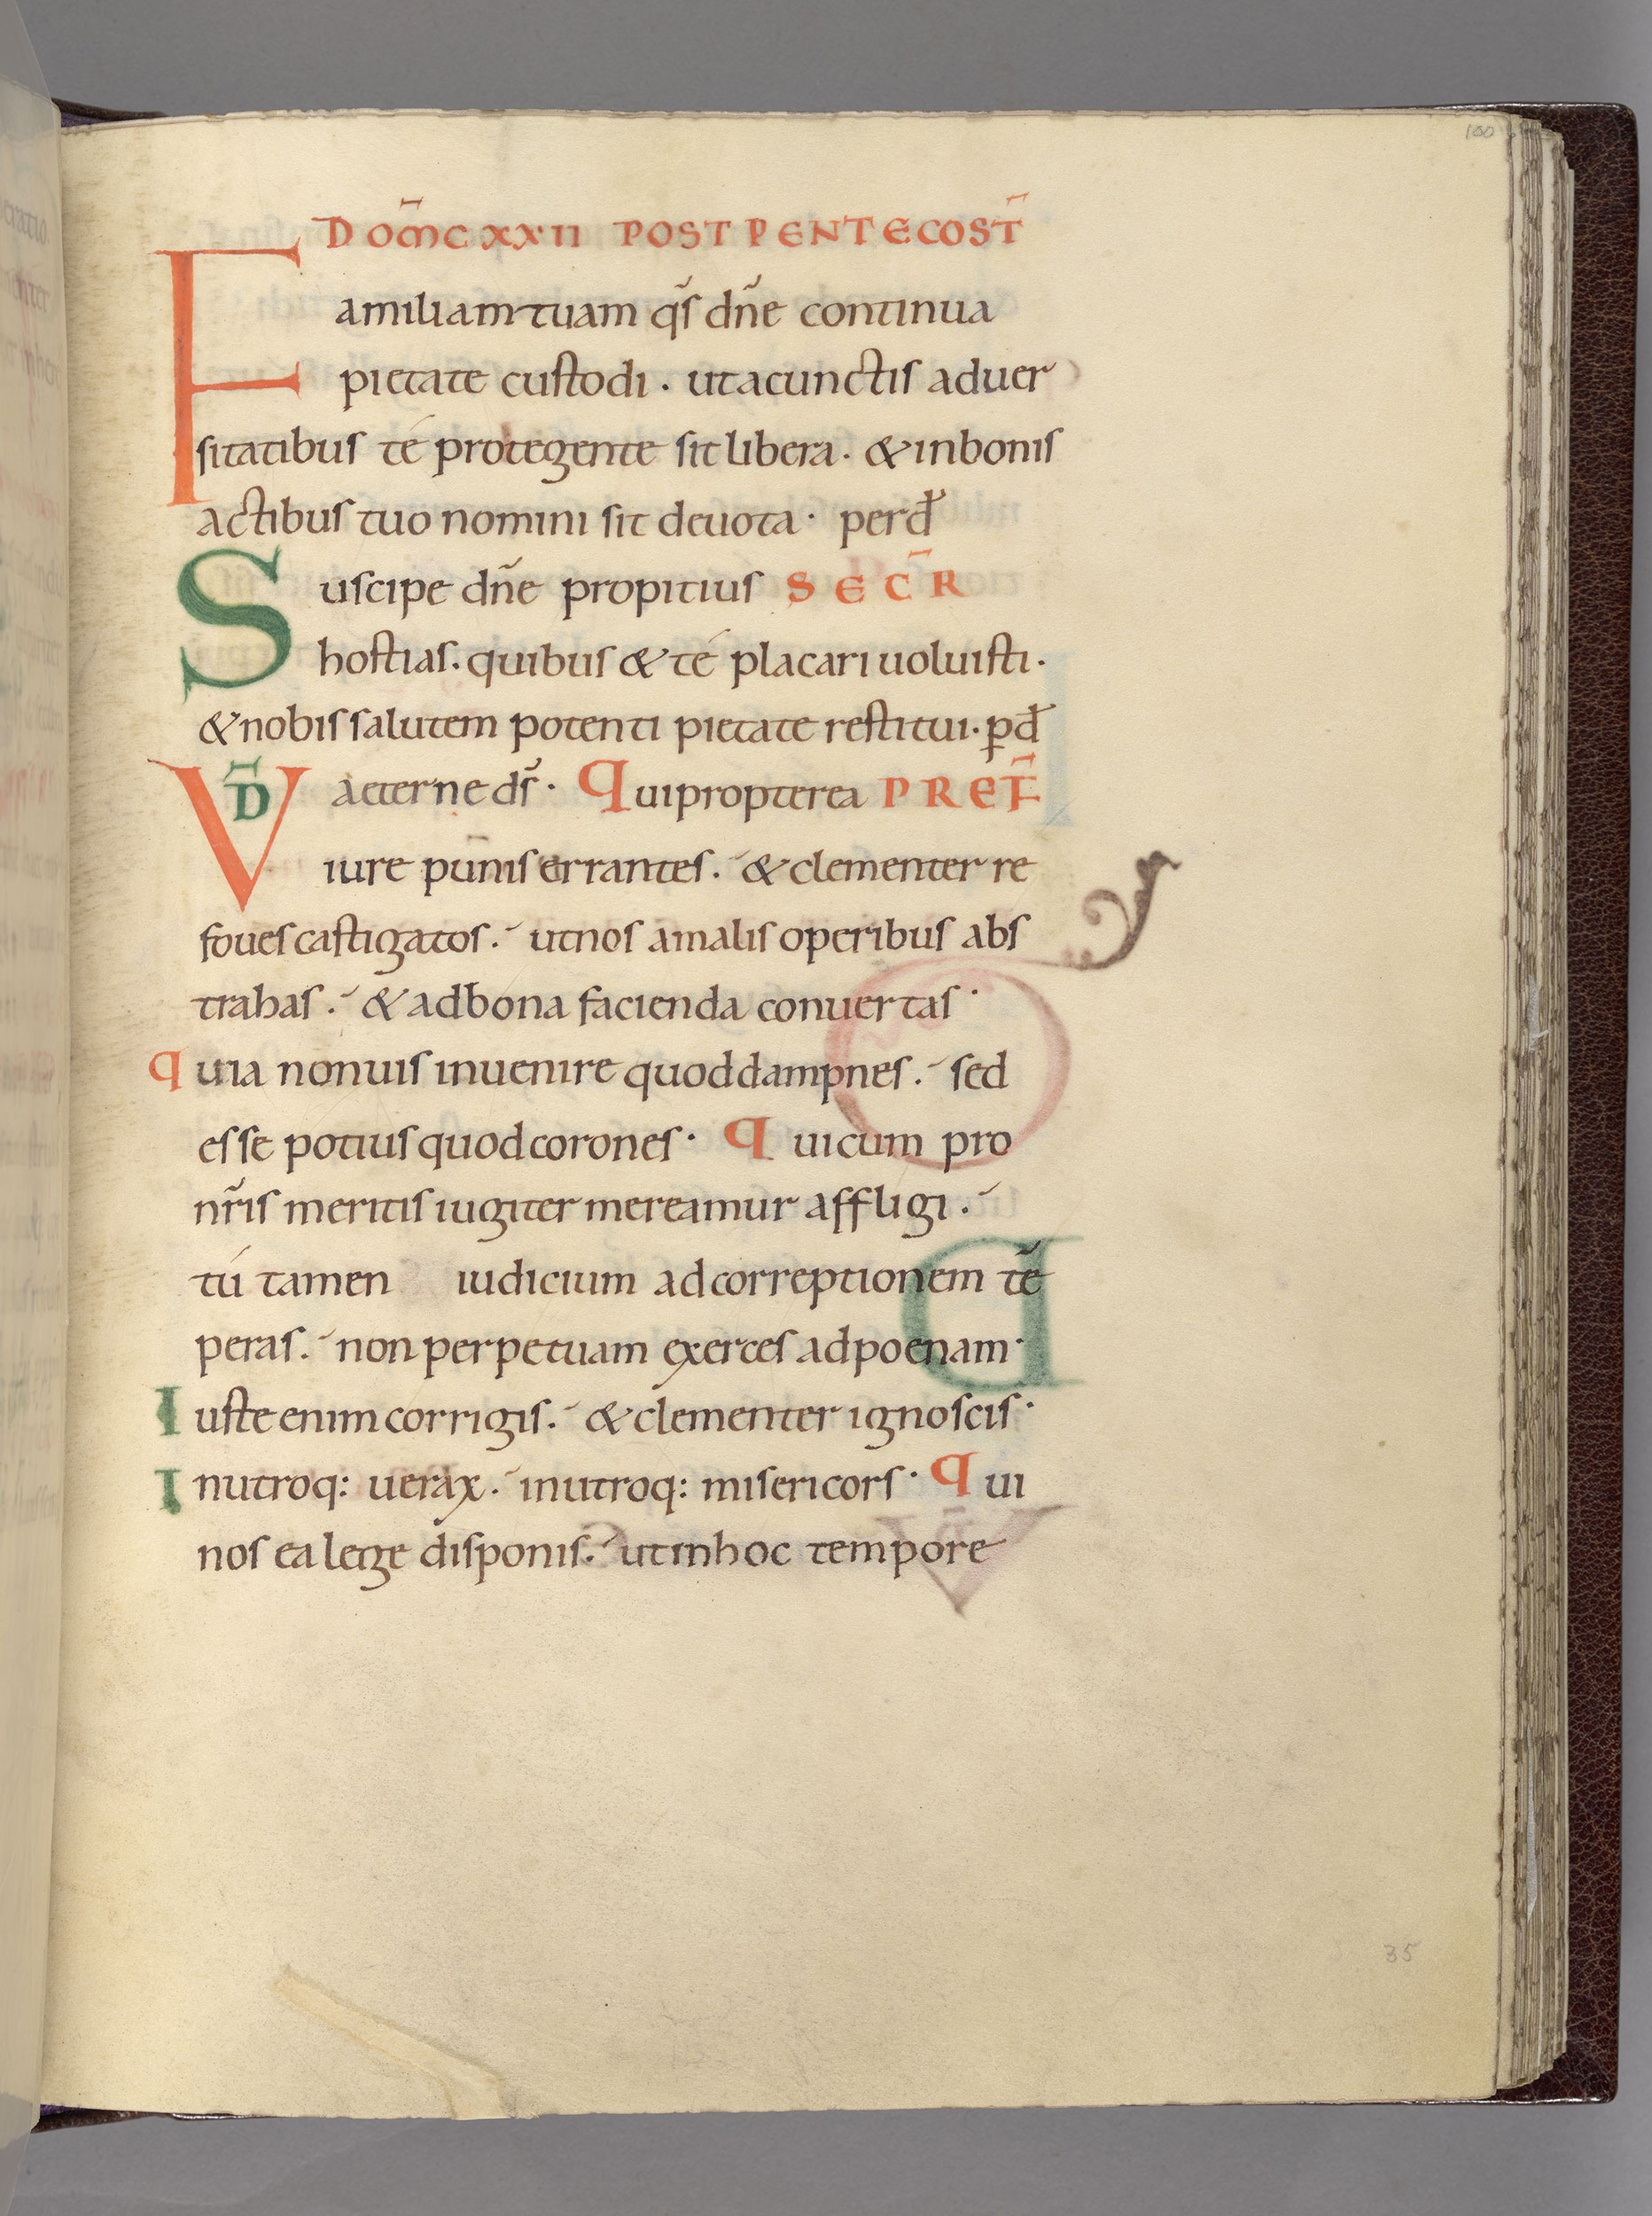 100
DOM̅C XXII POST PENTECOST̅
Familiam tuam qs̄ dn̄e continua
pietate custodi · ut a cunctis aduer
sitatibus té protegente sit libera · & in bonis
actibus tuo nomini sit deuota · per đ
Suscipe dn̄e propitius SECR̅
hostias · quibus & té placari uoluisti ·
& nobis salutem potenti pietate restitui · p̱ đ
VD̅ aeterne ds̄ · Qui propterea PREF̅
iure punis errantes · & clementer re
foues castigatos · ut nos a malis operibus abs
trahas · & ad bona facienda conuertas ·
quia non uis inuenire quod dampnes · sed
esse potius quod corones · Qui cum pro
nr̄is meritis iugiter mereamur affligi ·
tú tamen iudicium ad correptionem tē
peras · non perpetuam exerces ad poenam ·
Iuste enim corrigis · & clementer ignoscis ·
Inutroq: uerax · inutroq: misericors · Qui
nos ea lege disponis · ut in hoc tempore
35